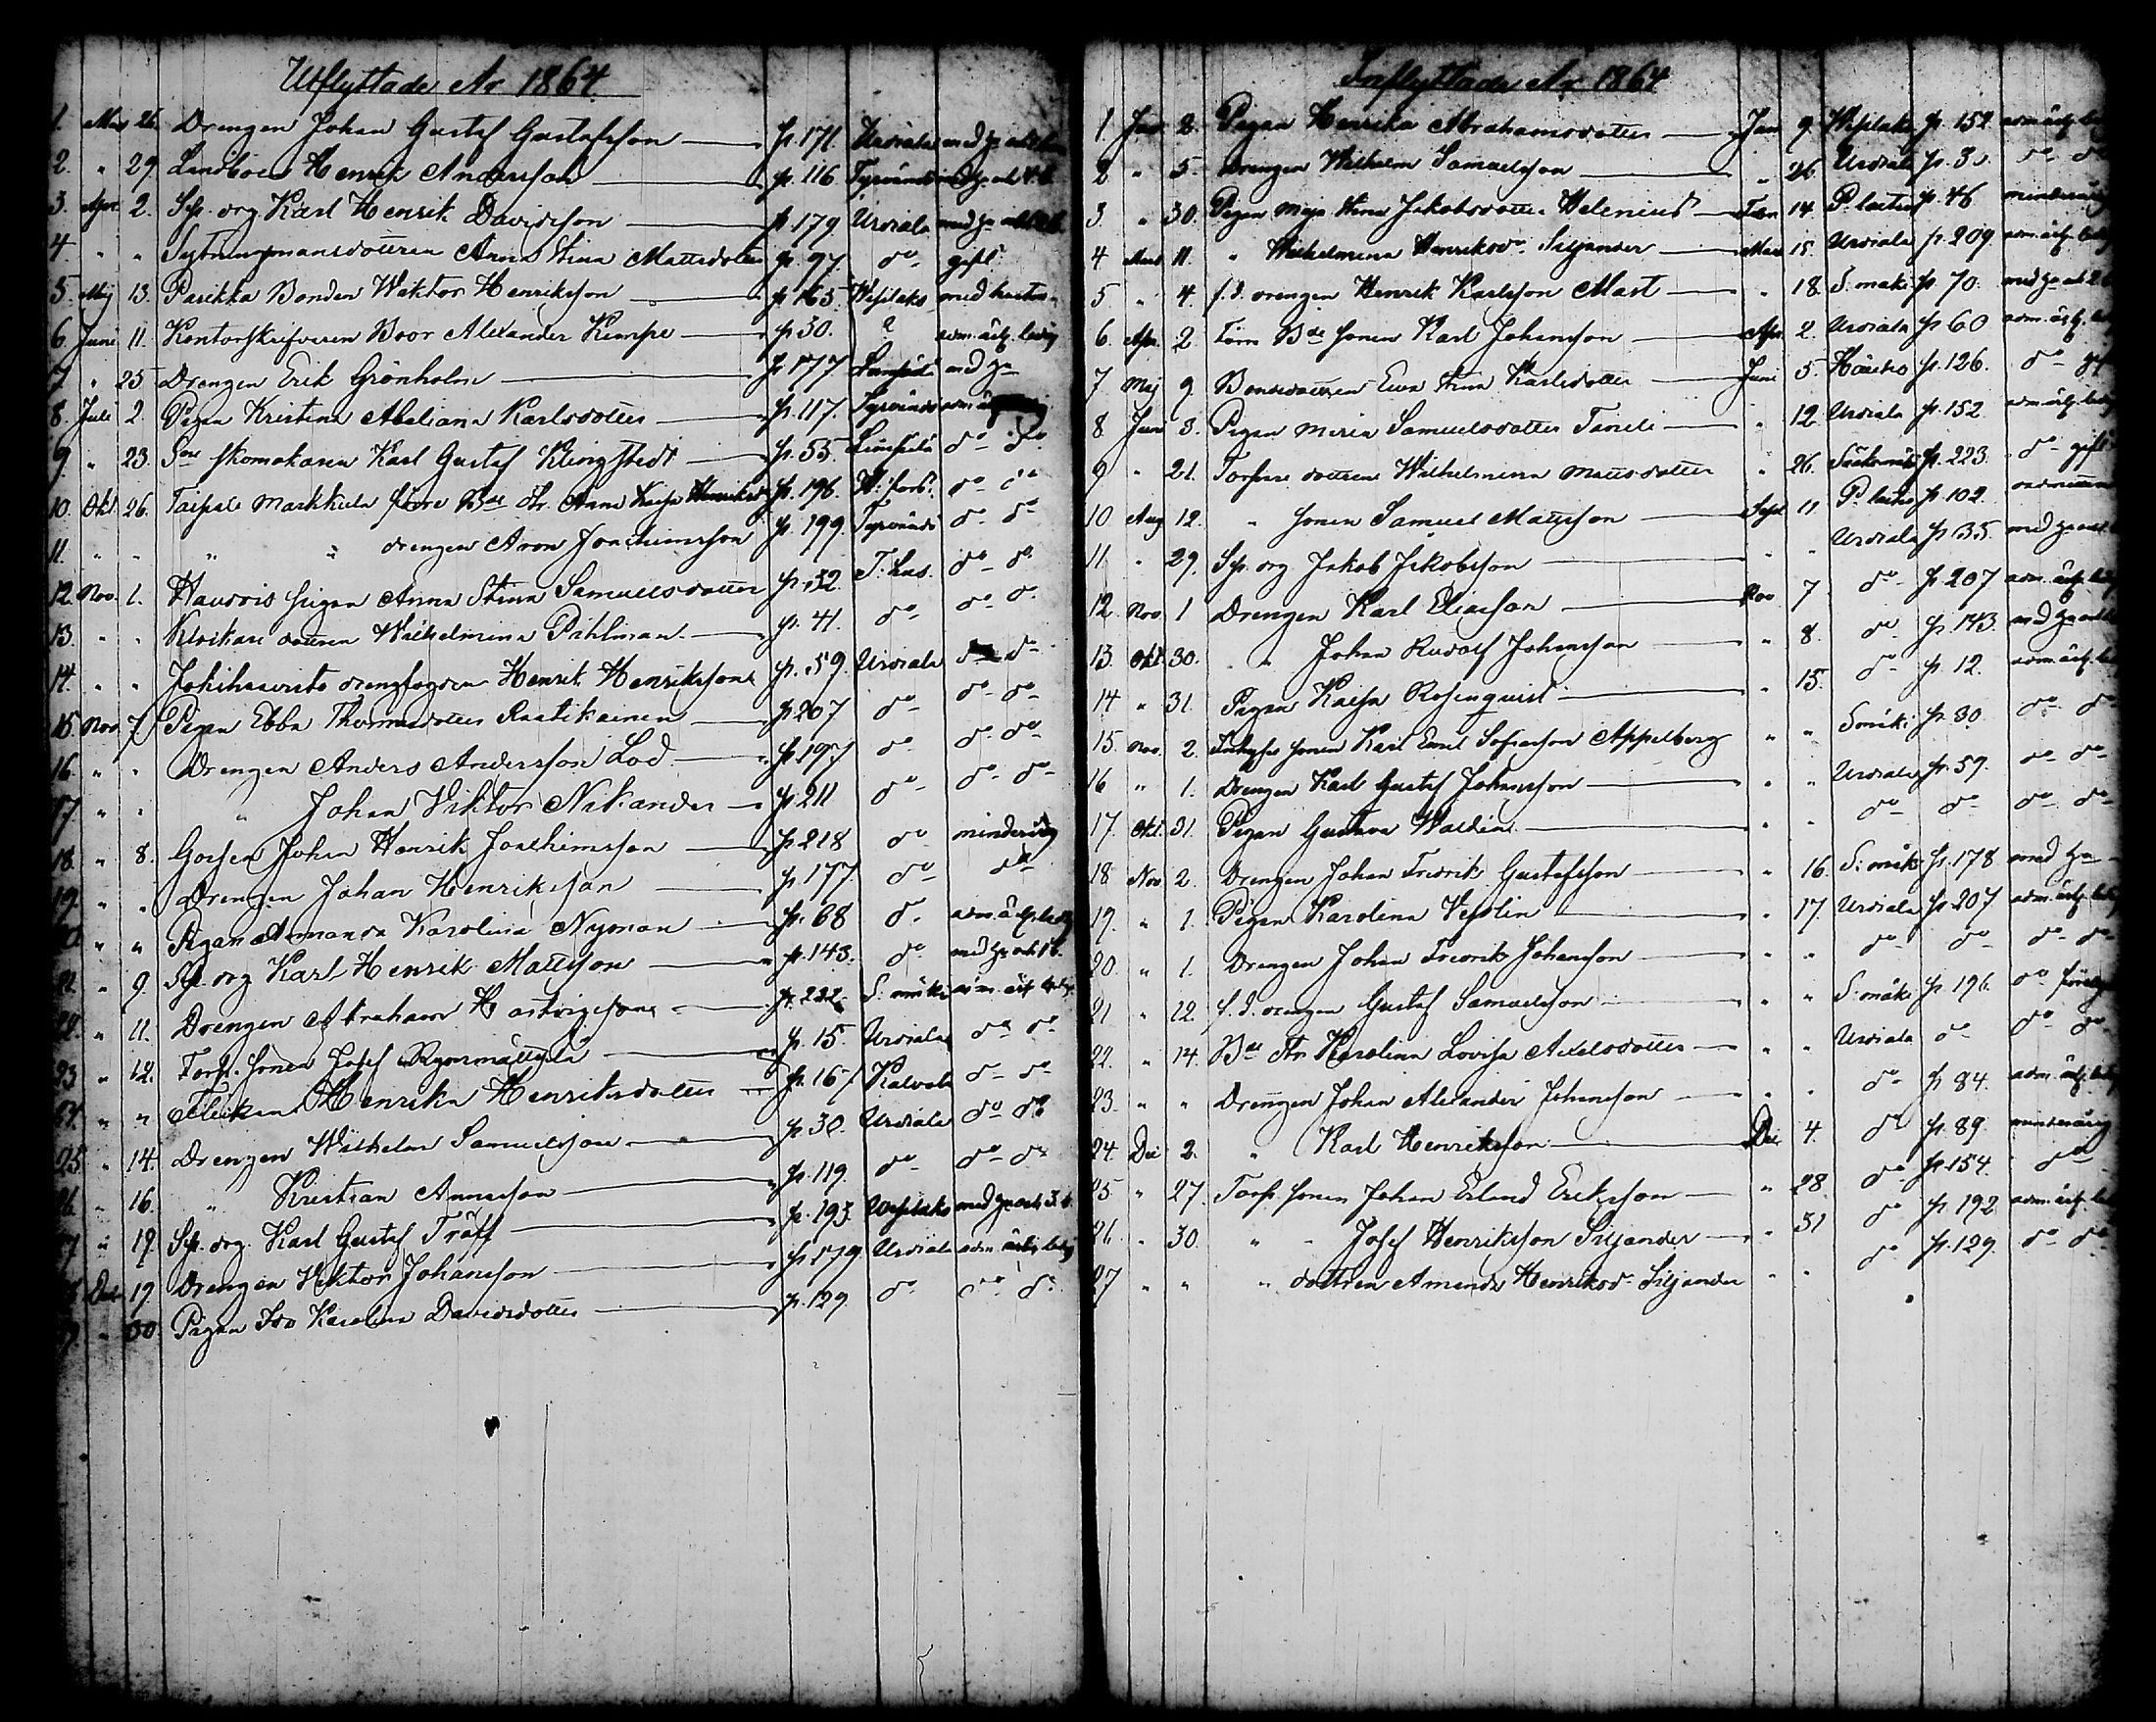 Utflyttade År 1864
1. Mars 26. Drengen Johan Gustaf Gustafsson p. 171. Urdiala med h. och
2. " 29. Landboen Henrik Andersson p. 116 Tyrvändö med h. och 4 b.
3. Apr. 2. Sp. drg Karl Henrik Davidsson p. 179. Urdiala med h. och
4. " " Sytningsmansdottren Anna Stina Mattsdotter p. 97. do gift
5. Maj 13. Pasikka Bonden Wiktor Henriksson p. 163. Wesilaks med hustru
6. Juni 11. Kontorskrifveren Boor Alexander Kempe p. 30. ? adm. äkt. ledig
7. " 25 Drengen Erik Grönholm p. 177 Lempälä med h.
8. Juli 2. Pigan Kristina Abeliana Karlsdotter p. 117. Tyrvändö adm.
9. " 23. Snre skomakaren Karl Gustaf Klingstedt p. 55. Lempälä do do
10. Okt. 26. Taipale Markkula förre Bde dr. Anna Kaisa Henriksd. p. 196. H:fors. do do
11. " " " " drengen Aron Joachimsson p. 199. Tyrvändö do do
12. Nov. 1. Haudois pigan Anna Stina Samuelsdotter p. 32. T:hus. do do
13. " " Klockare dottren Wilhelmina Pihlman p. 41. do do do
14. " " Jokihaavisto drengfogden Henrik Henriksson p. 59. Urdiala do do
15. Nov. 7. Pigan Ebba Thomasdotter Raatikainen p. 207 do do do
16. " " Drengen Anders Andersson Lod p. 197 do do do
17. " " " Johan Viktor Nikander p. 211 do do do
18. " 8. Gossen Johan Henrik Joachimsson p. 218 do minderårig
19. " " Drengen Johan Henriksson p. 177. do do
20 " " Pigan Amanda Karolina Nyman p. 68 do adm. äkt. ledig
21. " 9. Sp. drg Karl Henrik Mattsson p. 143. do med h. och 1 b.
22. " 11. Drengen Abraham Hartvigsson p. 222 S:mäki adm. äkt. ledig
23 " 12. Torp. sonen Josef Ryönmättylä p. 15. Urdiala do do
24. " " Flickan Henrika Henriksdotter p. 167 Kalvola do do
25 " 14. Drengen Wilhelm Samuelsson p. 30. Urdiala do do
26. " 16. " Kristian Annasson p. 119. do do do
27 " 19. Sp. drg. Karl Gustaf Träff p. 193. Wesilaks med h. och 3 b.
28 Dec. 19. Drengen Viktor Johansson p. 179. Urdiala adm. äkt. ledig
29. " 30. Pigan Ida Karolina Davidsdotter p. 129 do do do
Inflyttade År 1864
1 Jan 2. Pigan Henrika Abrahamsdotter Jan 9. Wesilaks p. 152. adm. äkt. ledig
2 " 5. Drengen Wilhelm Samuelsson " 26. Urdiala p. 30. do do
3 " 30. Pigan Maja Stina Jakobsdotter Helenius Febr. 14. P. p. 46 minderårig
4 Mars 11. " Wilhelmina Henriksdr Siljander Mars 15. Urdiala p. 209. adm. äkt. ledig
5 " 4. f. d. drengen Henrik Karlsson Mast " 18. S:mäki p. 70. med h. och 2 b.
6. Apr. 2 Torp. Bde sonen Karl Johansson Apr. 2. Urdiala p. 60 adm. äkt. ledig
7 Maj 9. Bondedottren Eva Stina Karlsdotter Juni 5. p. 126. do gift
8. Juni 3. Pigan Maria Samuelsdotter Taneli " 12. Urdiala p. 152. adm. äkt. ledig
9 " 21. Torpare dottren Wilhelmina Mattsdotter " 26. Sääksmäki p. 223. do gift
10 Aug 12. " sonen Samuel Mattsson Sept 11 P. p. 102.
11. " 29. Sp. drg Jakob Jakobsson " " Urdiala p. 35. med h. och
12. Nov. 1 Drengen Karl Eliasson Nov. 7 do p. 207 adm. äkt. ledig
13. Okt. 30. " Johan Rudolf Johansson " 8. do p. 143. med h. och
14 " 31. Pigan Kaisa Rosenquist " 15. do p. 12. adm. äkt. ledig
15. Nov. 2. Inhyses sonen Karl Emil Sofiasson Appelberg " " S:mäki p. 30. do do
16 " 1. Drengen Karl Gustaf Johansson " " Urdiala p. 59. do do
17. Okt. 31. Pigan Gustava Waldin " " do do do do
18 Nov. 2. Drengen Johan Fredrik Gustafsson " 16. S:mäki p. 178 med h.
19. " 1. Pigan Karolina Vesslin " 17. Urdiala p. 207 adm. äkt. ledig
20. " 1. Drengen Johan Fredrik Johansson " " do do do do
21 " 12. f. d. drengen Gustaf Samuelsson " " S:mäki p. 196. do
22. " 14. Bde dr Karolina Lovisa Axelsdotter " " Urdiala do do do
23. " " Drengen Johan Alexander Johansson " " do p. 84. adm. äkt. ledig
24. Dec 2. " Karl Henriksson Dec 4. do p. 89. minderårig
25. " 27. Torp. sonen Johan Erland Eriksson " 28. do p. 154. do
26. " 30. " " Josef Henriksson Siljander " 31 do p. 192 adm. äkt. ledig
27 " " " dottren Amanda Henriksdr Siljander " " do p. 129. do do